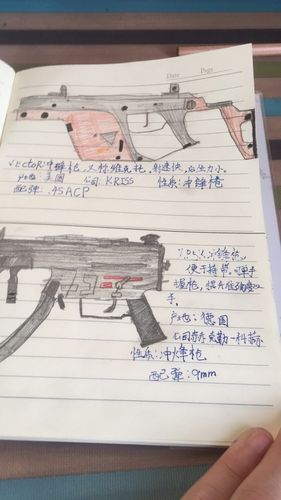 Date Page
VECTOR冲锋枪,又称维克托.射速快,后坐力小.
产地:美国 公司:KRISS 性质:冲锋枪
配弹:.45ACP
便于携带,可单手
手.
产地:德国
公司:赫克勒-科赫.
性质:冲烽枪
配弹:9mm